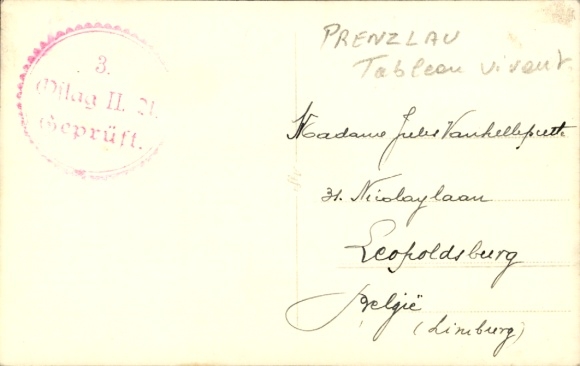 3.
Oflag II. A.
Geprüft.
PRENZLAU
Tableau vivant.
Madame Jules Vanhelleputte
31. Nicolaylaan
Leopoldsburg
België
(Limburg)